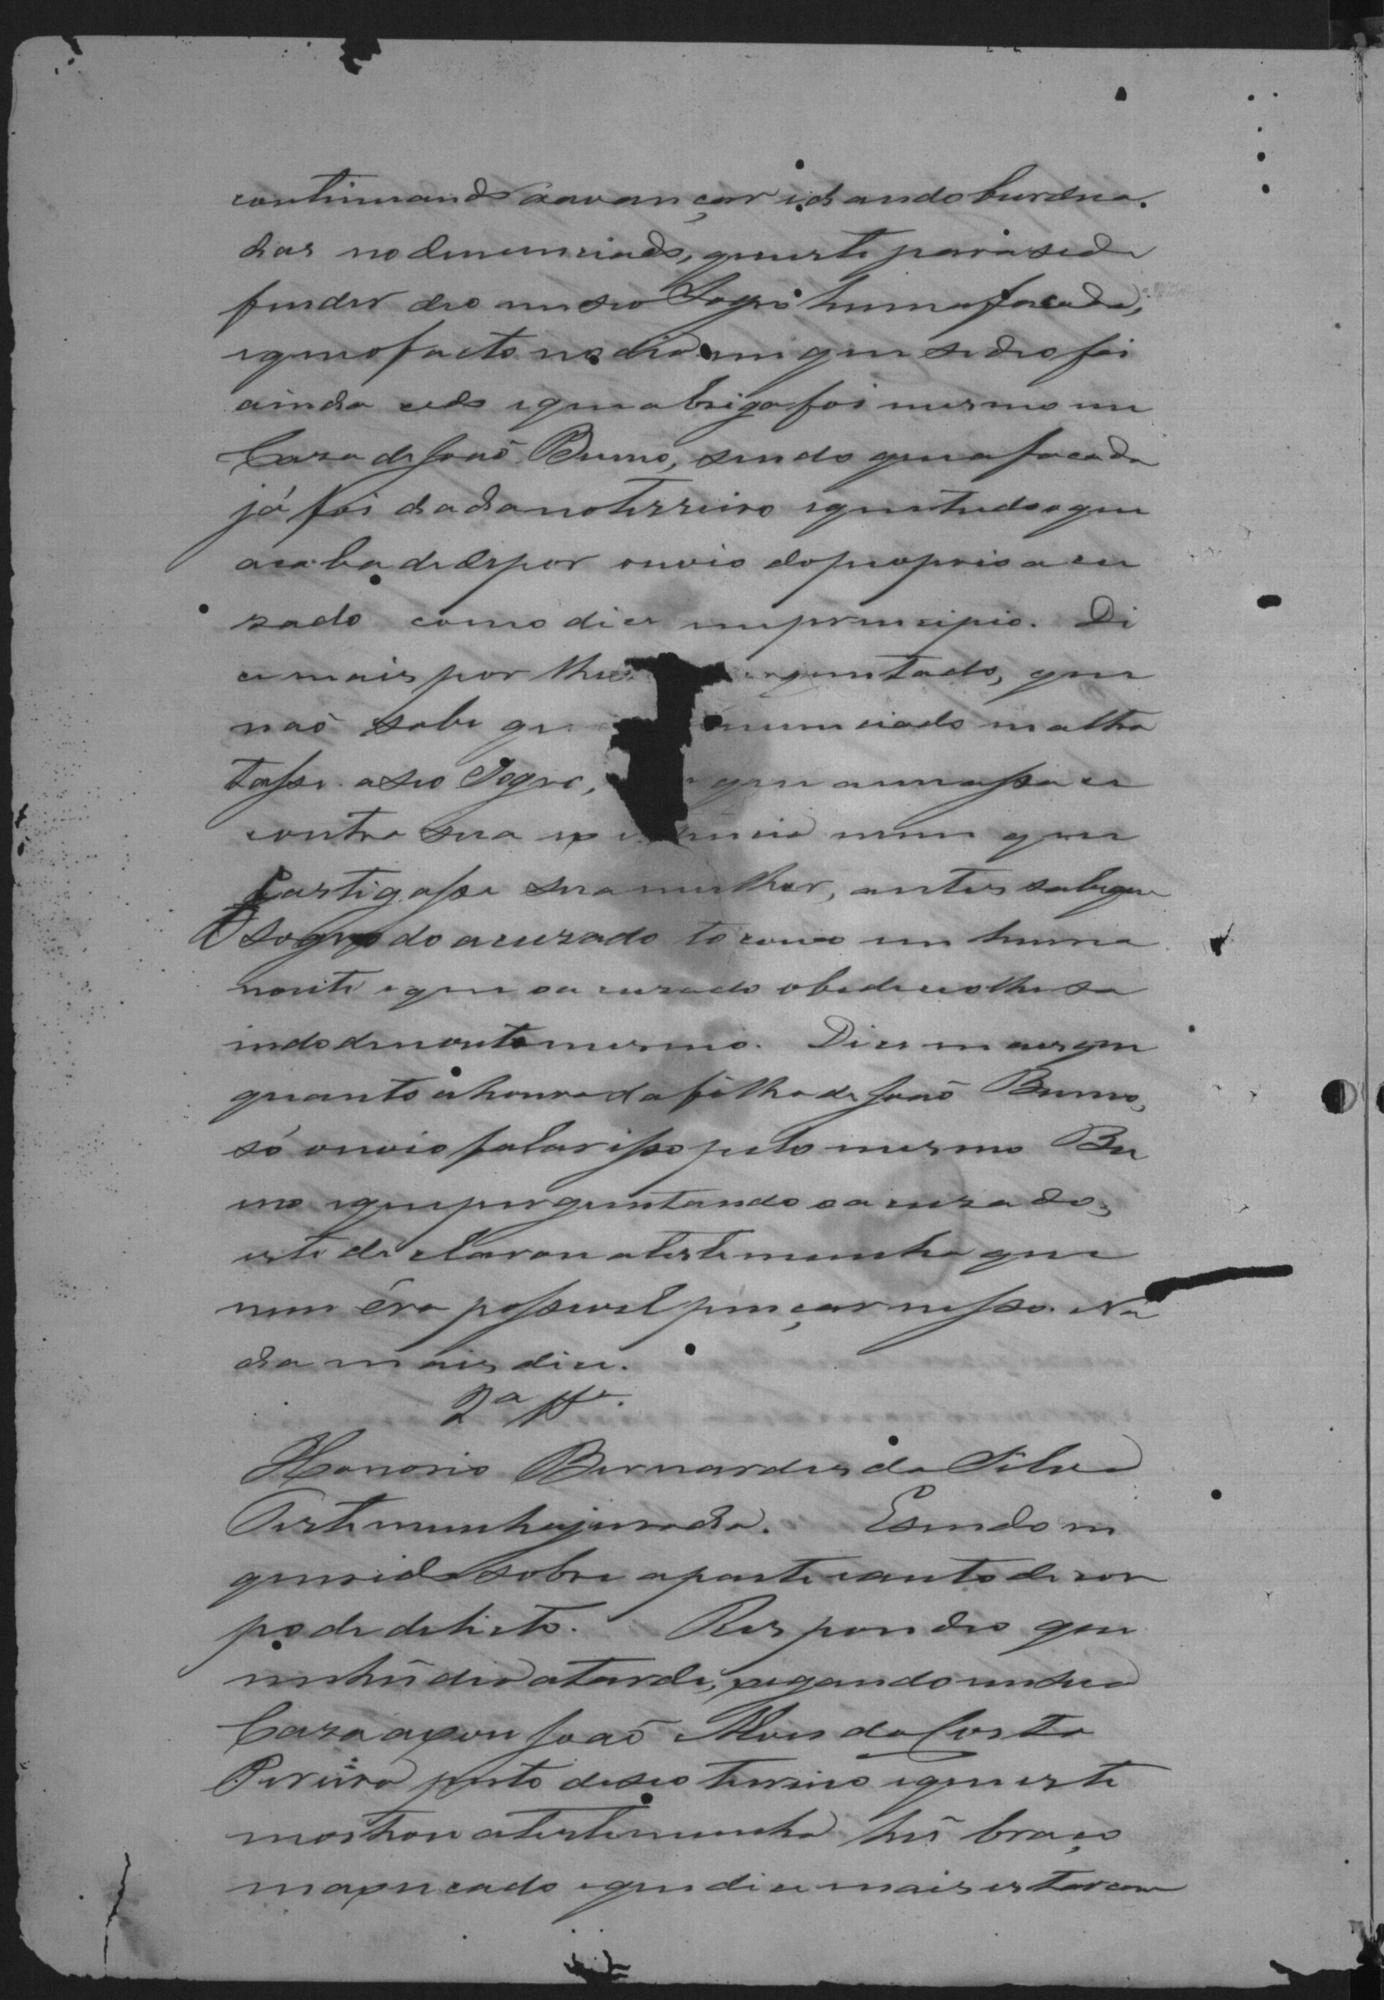 continuando a avançar e dando burdua-
das no denunciado, que este para se de
fender deo em seo Sogro huma facada,
e que o facto no dia em que se deo foi
ainda cedo e que a briga foi mesmo em
Caza de João Bueno, sendo que a facada
já foi dada no terreiro e que tudo o que
acaba de depor ouvio do proprio acu
zado como dice no principio. Di
ce mais por lhe perguntado, que
não sabe que denunciado maltra
tasse a seo Sogro, que ameassace
contra sua nem que
Castigasse sua mulher, antes sabe que
o sogro do acuzado tocouo em huma
noute e que o acuzado obedeceolhe sa
indo de noute mesmo. Dice mais que
quanto a honra da filha de João Bueno,
só ouvio falar isso pelo mesmo Bu
eno e que perguntando o acuzado,
este declarou a testemunha que
nem éra possivel pençar nisso. Na
da mais dice.
2ª Tª.
Honorio Bernardes da Silva
Testemunha jurada. E sendo in
querida sobre a parte e auto de cor
po de delicto. Respondeo que
em hũ dia a tarde, xegando em sua
Caza axou João Alves da Costa
Pereira perto de seo terreiro e que este
mostrou a testemunha hũ braço
maxucado e que dice mais estar com